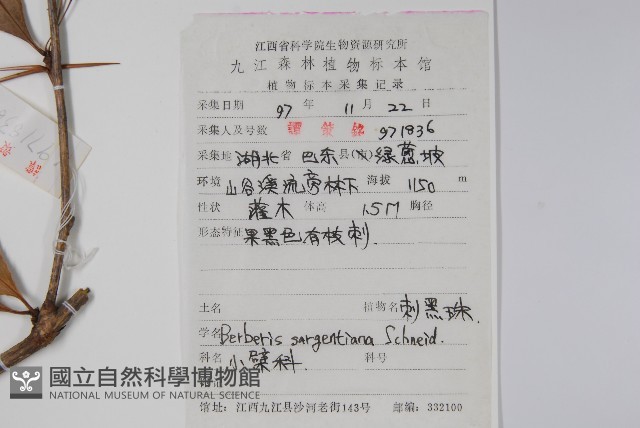 江西省科学院生物资源研究所
九江森林植物标本馆
植物标本采集记录
采集日期 97 年 11 月 22 日
采集人及号数 971836
采集地 湖北 省 巴东 县(市) 绿葱坡
环境 山谷溪流旁林下 海拔 1150 m
性状 灌木 体高 1.5M 胸径
形态特征 果黑色有枝刺.
土名 植物名 刺黑珠.
学名 Berberis sargentiana Schneid.
科名 小檗科 科号
國立自然科學博物館
NATIONAL MUSEUM OF NATURAL SCIENCE
馆址:江西九江县沙河老街143号 邮编:332100